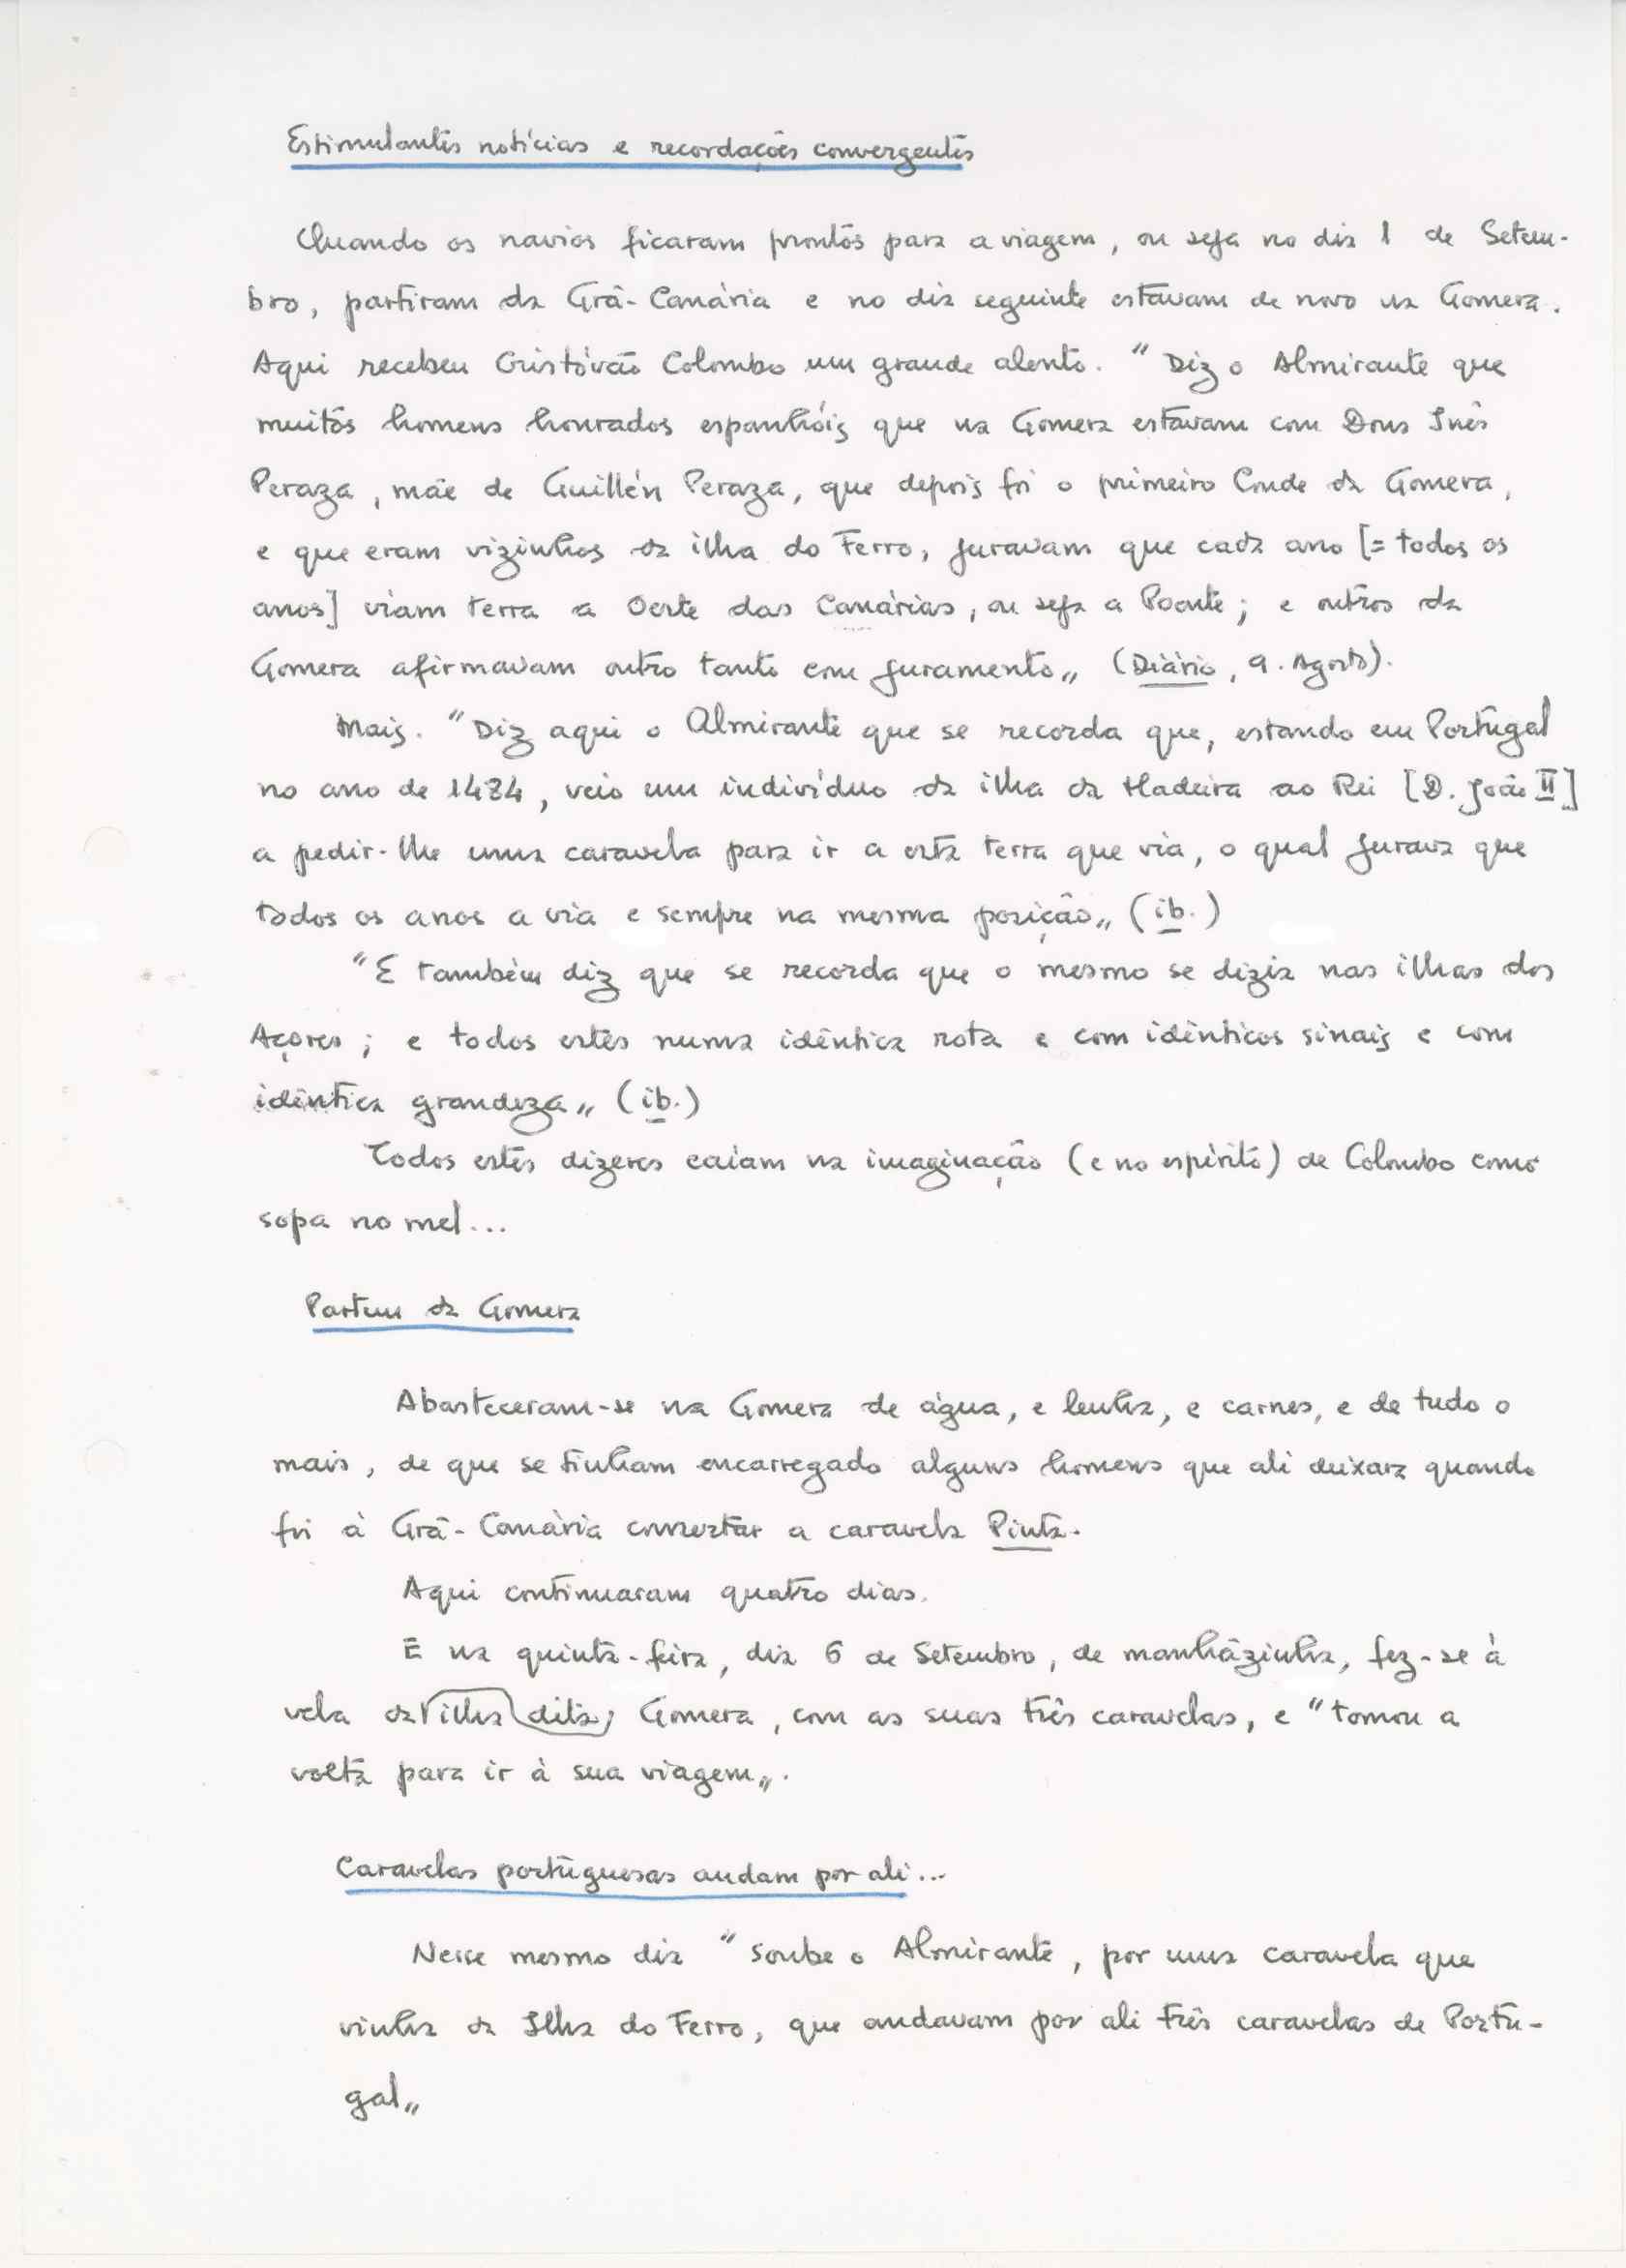 Estimulantes notícias e recordações convergentes
Quando os navios ficaram prontos para a viagem, ou seja no dia 1 de Setem-
bro, partiram da Grã-Canária e no dia seguinte estavam de novo na Gomera.
Aqui recebeu Cristóvão Colombo um grande alento. "Diz o Almirante que
muitos homens honrados espanhóis que na Gomera estavam com Dona Inês
Peraza, mãe de Guillén Peraza, que depois foi o primeiro Conde da Gomera,
e que eram vizinhos da ilha do Ferro, juravam que cada ano [= todos os
anos] viam terra a Oeste das Canárias, ou seja a Poente; e outros da
Gomera afirmavam outro tanto com juramento„ (Diário, 9. Agosto).
Mais. "Diz aqui o Almirante que se recorda que, estando em Portugal
no ano de 1484, veio um indivíduo da ilha da Madeira ao Rei [D. João II]
a pedir-lhe uma caravela para ir a esta terra que via, o qual jurava que
todos os anos a via e sempre na mesma posição„ (ib.)
"E também diz que se recorda que o mesmo se dizia nas ilhas dos
Açores; e todos estes numa idêntica rota e com idênticos sinais e com
idêntica grandeza„ (ib.)
Todos estes dizeres caiam na imaginação (e no espírito) de Colombo como
sopa no mel...
Partem da Gomera
Abasteceram-se na Gomera de água, e lenha, e carnes, e de tudo o
mais, de que se tinham encarregado alguns homens que ali deixara quando
foi à Grã-Canária consertar a caravela Pinta.
Aqui continuaram quatro dias.
E na quinta-feira, dia 6 de Setembro, de manhãzinha, fez-se à
vela da ilha dita, Gomera, com as suas três caravelas, e "tomou a
volta para ir à sua viagem„.
Caravelas portuguesas andam por ali...
Nesse mesmo dia "soube o Almirante, por uma caravela que
vinha da Ilha do Ferro, que andavam por ali três caravelas de Portu-
gal„